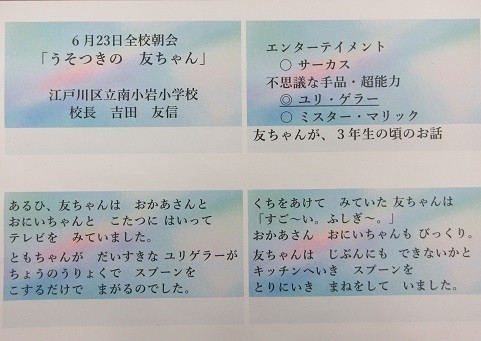 ６月23日全校朝会
「うそつきの　友ちゃん」
江戸川区立南小岩小学校
校長　吉田　友信
エンターテイメント
○ サーカス
不思議な手品・超能力
◎ ユリ・ゲラー
○ ミスター・マリック
友ちゃんが、３年生の頃のお話
あるひ、友ちゃんは　おかあさんと
おにいちゃんと　こたつに はいって
テレビを　みていました。
ともちゃんが　だいすきな ユリゲラーが
ちょうのうりょくで　スプーンを
こするだけで　まがるのでした。
くちをあけて　みていた 友ちゃんは
「すご～い。ふしぎ～。」
おかあさん　おにいちゃんも びっくり。
友ちゃんは　じぶんにも　できないかと
キッチンへいき　スプーンを
とりにいき　まねをして　いました。